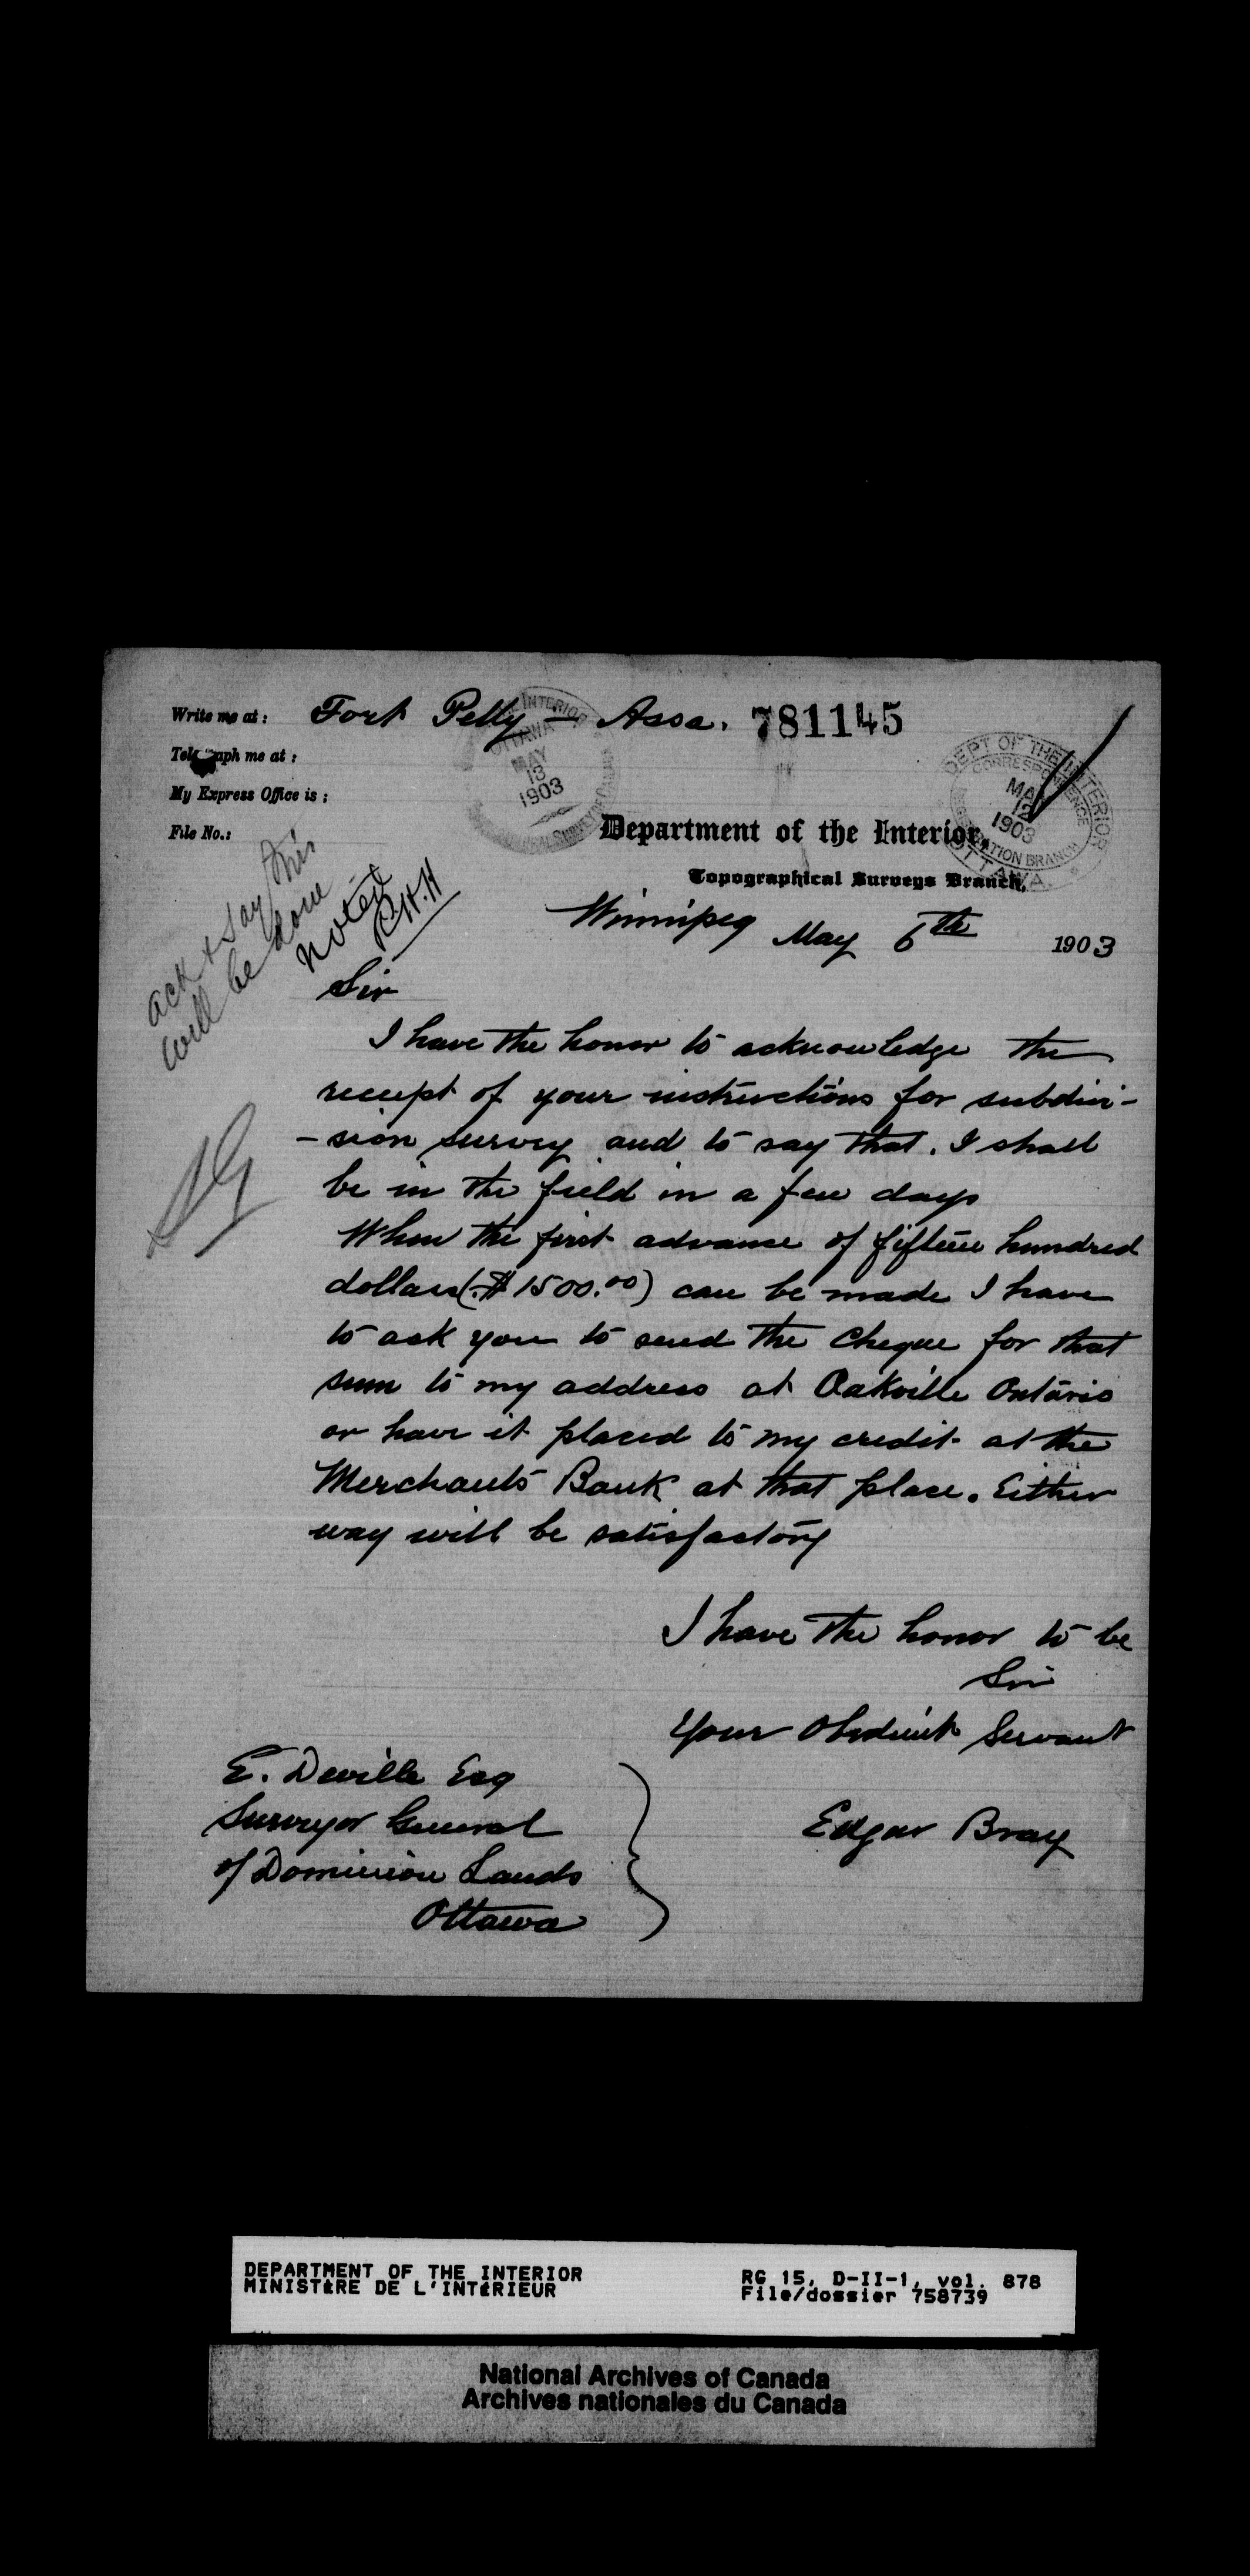 Write me at: Fort Pelly - Assa. 781145
Telegraph me at:
My Express Office is:
File No.:
INTERIOR
OTTAWA
MAY
13
1903
DEPT OF THE INTERIOR
CORRESPONDENCE
MAY
12
1903
REGISTRATION BRANCH
OTTAWA.
Department of the Interior,
Topographical Surveys Branch,
Winnipeg May 6th 1903
ack & say this
will be done
noted
Sir
I have the honor to acknowledge the
receipt of your instructions for subdivi-
-sion survey and to say that. I shall
be in the field in a few days
When the first advance of fifteen hundred
dollars ($1500.00) can be made I have
to ask you to send the Cheque for that
sum to my address at Oakville Ontario
or have it placed to my credit at the
Merchants Bank at that place. Either
way will be satisfactory
I have the honor to be
Sir
Your Obedient Servant
Edgar Bray
E. Deville Esq
Surveyor General
of Dominion Lands
Ottawa
DEPARTMENT OF THE INTERIOR
MINISTÈRE DE L'INTÉRIEUR
RG 15, D-II-1, vol. 878
File/dossier 758739
National Archives of Canada
Archives nationales du Canada